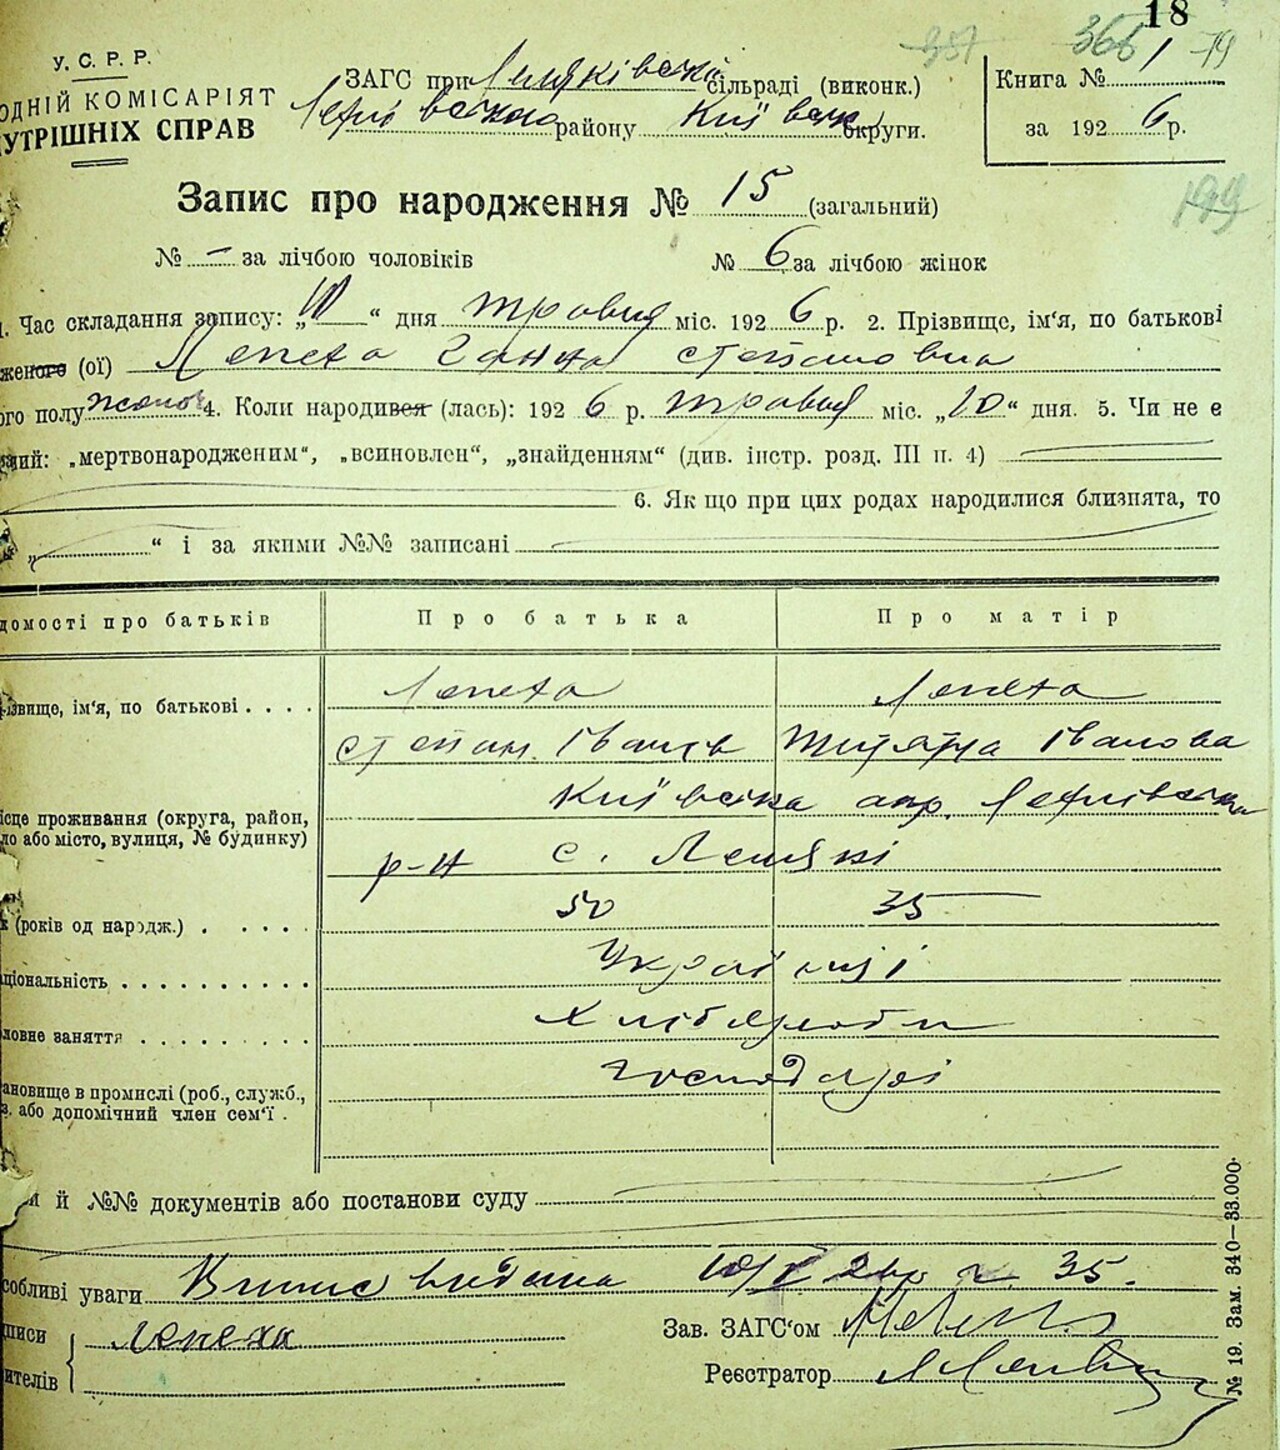 18
366 1 79
У. С. Р. Р.
ОДНІЙ КОМІСАРІЯТ
УТРІШНІХ СПРАВ
ЗАГС при сільраді (виконк.)
району Київськ округи.
Книга №
за 192 6 р.
Запис про народження № 15 (загальний)
№ – за лічбою чоловіків
№ 6 за лічбою жінок
1. Час складання запису: „ “ дня травня міс. 192 6 р. 2. Прізвище, ім'я, по батькові
женого (ої) Лепеха Ганна Степановна
ого полу жіноч 4. Коли народився (лась): 192 6 р. травня міс. „10“ дня. 5. Чи не є
ний: „мертвонародженим“, „всиновлен“, „знайденням“ (див. інстр. розд. III п. 4)
6. Як що при цих родах народилися близнята, то
„ “ і за якими №№ записані
домості про батьків
Про батька
Про матір
ізвище, ім'я, по батькові . . . .
Лепеха
Лепеха
Степан Іванів
Тетяна Іванова
ісце проживання (округа, район,
ло або місто, вулиця, № будинку)
Київська окр.
р-н с. Лемякі
(років од народж.) . . . . .
50
35
ціональність . . . . . . . . . .
Українці
ловне заняття . . . . . . . . .
Хлібороби
ановище в промислі (роб., служб.,
з. або допомічний член сем'ї .
господарі
и й №№ документів або постанови суду
собливі уваги Випис видана 10/V 26 р ч. 35.
писи
ителів
Лепеха
Зав. ЗАГС'ом
Реєстратор
№ 19. Зам. 340—33.000.